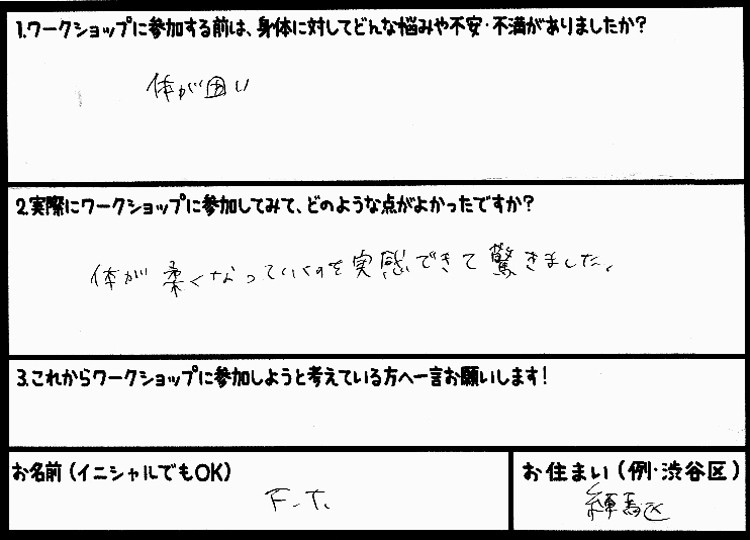 1.ワークショップに参加する前は、身体に対してどんな悩みや不安・不満がありましたか?
体が固い
2.実際にワークショップに参加してみて、どのような点がよかったですか?
体が柔くなっていくのを実感できて驚きました。
3.これからワークショップに参加しようと考えている方へ一言お願いします!
お名前(イニシャルでもOK)
F.T.
お住まい(例・渋谷区)
練馬区